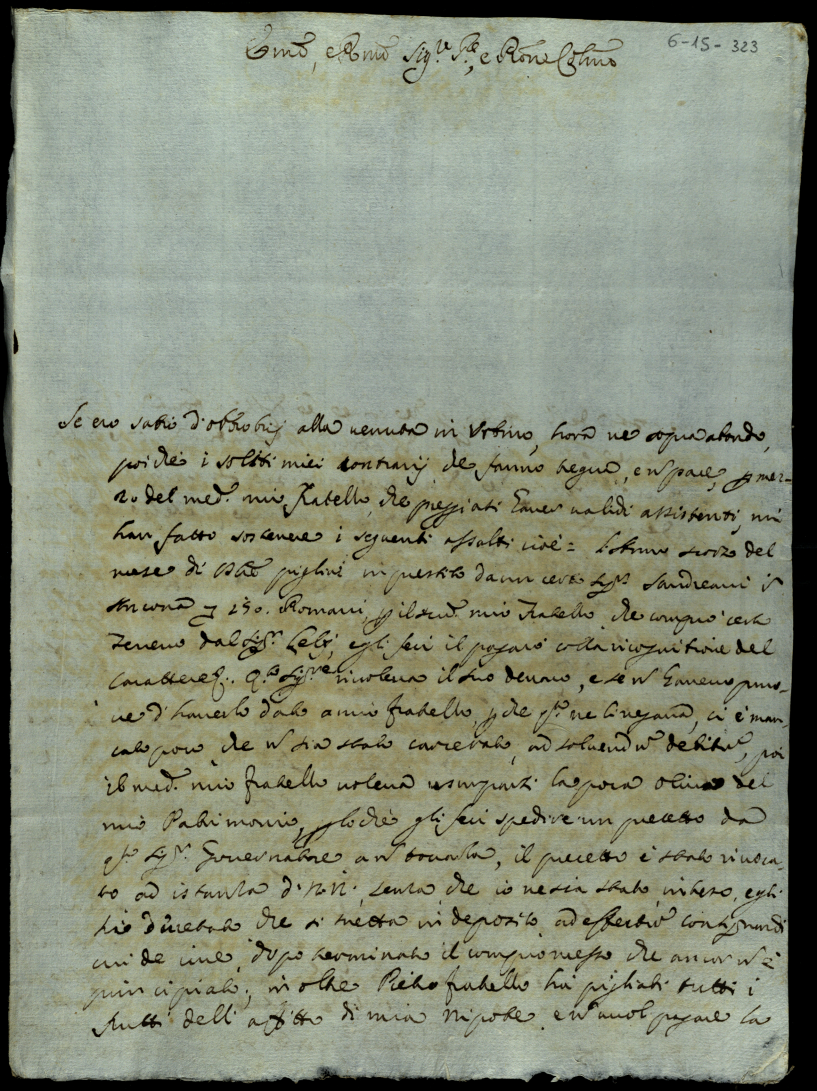 6-15-323
Emo, e Rmo Sig.re Sre, e Rone Colmo
Se ero satio d'obbrobrij alla venuta in Urbino, hora ne sopra abondo,
poiche i soliti miei contrarij che fanno tregua, e n pace, p mez-
zo del med.o mio fratello, che pregiati haver validi assistenti, mi
han fatto sostenere i seguenti assalti cioè = l'ultimo scorso del
mese di pigliai in prestito da un certo Sig.r Sandreani
Ancona 150. Romani, p il sud.o mio fratello, che comprò certo
Terreno dal Sig.r egli feci il pagarò colla ricognitione del
Carattere. Q.to Sig.re rivoleva il suo denaro, e se n havevo pro-
ve d'haverlo dato a mio fratello, p che q.to ne lo negava, ci è man-
cato poco che n sia stato carcerato, ad solvend debitu, poi
il med.o mio fratello voleva usurparsi la poca oliva del
mio Patrimonio, p lo che gli feci spedire un precetto da
q.to Sig.r Governatore a n toccarla, il precetto è stato rivoca-
to ad istanza di N.N., senza che io ne sia stato inteso, e gli
hò decretato che si metta in deposito, ad effectu consignandi
cui de iure, dopo terminato il compromesso che ancor n è
principiato; in oltre Pietro fratello hà pigliati tutti i
frutti dell'affitto di mia Nipote e n vuol pagare la